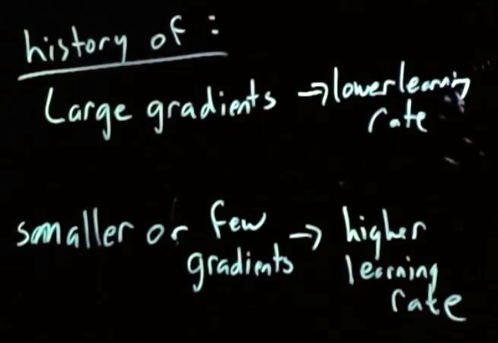 history of :
Large gradients → lower learning
rate
smaller or few → higher
gradients learning
rate